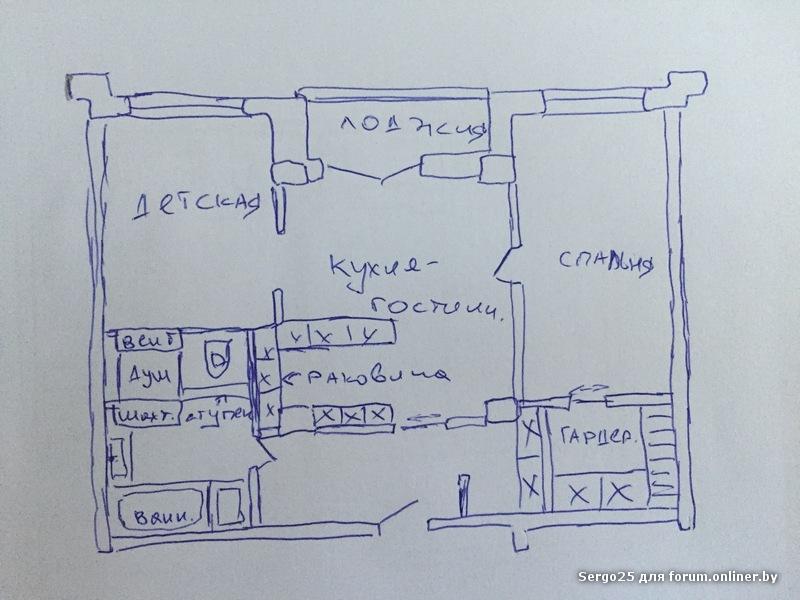 ЛОДЖИЯ
ДЕТСКАЯ
СПАЛЬНЯ
КУХНЯ-
ГОСТИНН.
ВЕНТ
ДУШ
РАКОВИНА
ШАХТ.
СТУПЕН
ГАРДЕР.
ВАНН.
Sergo25 для forum.onliner.by